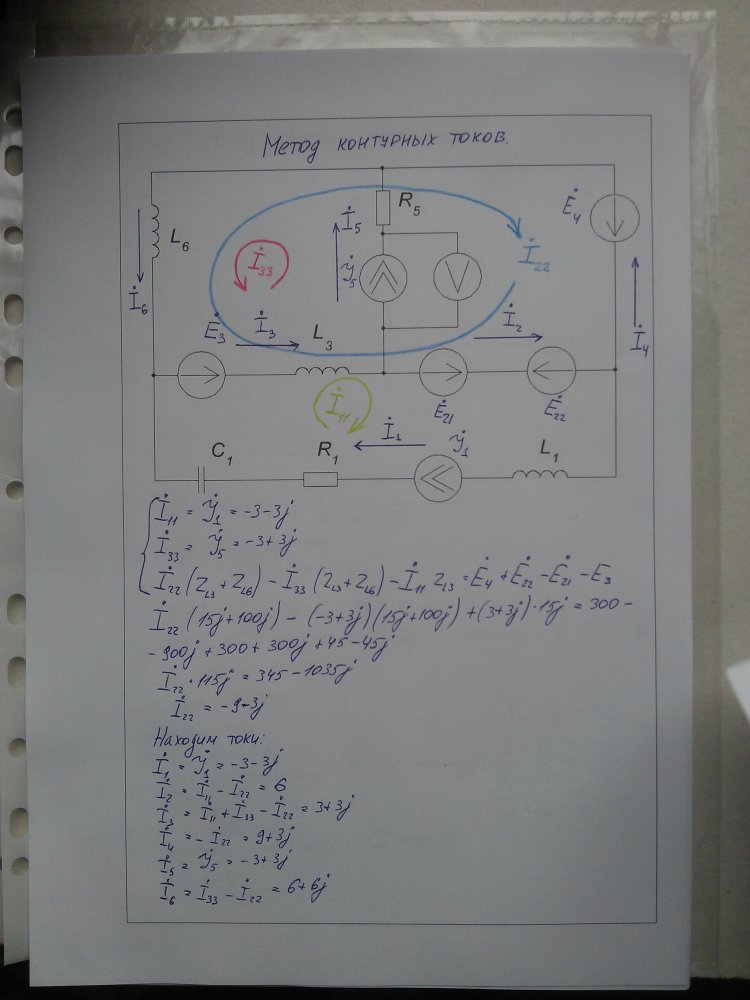 Метод контурных токов.
L6
R5
İ5
Ė4
İ33
İ22
ẏ5
V
İ6
Ė3
İ3
L3
İ2
İ4
İ11
Ė21
Ė22
C1
R1
İ1
ẏ1
L1
İ11 = ẏ1 = -3-3j
İ33 = ẏ5 = -3+3j
İ22 (ZL3 + ZL6) - İ33 (ZL3 + ZL6) - İ11 ZL3 = Ė4 + Ė22 - Ė21 - E3
İ22 (15j+100j) - (-3+3j)(15j+100j) + (3+3j)·15j = 300 -
- 900j + 300 + 300j + 45 - 45j
İ22 · 115j = 345 - 1035j
İ22 = -9+3j
Находим токи:
İ1 = ẏ1 = -3-3j
İ2 = İ11 - İ22 = 6
İ3 = İ11 + İ33 - İ22 = 3+3j
İ4 = - İ22 = 9+3j
İ5 = ẏ5 = -3+3j
İ6 = İ33 - İ22 = 6+6j